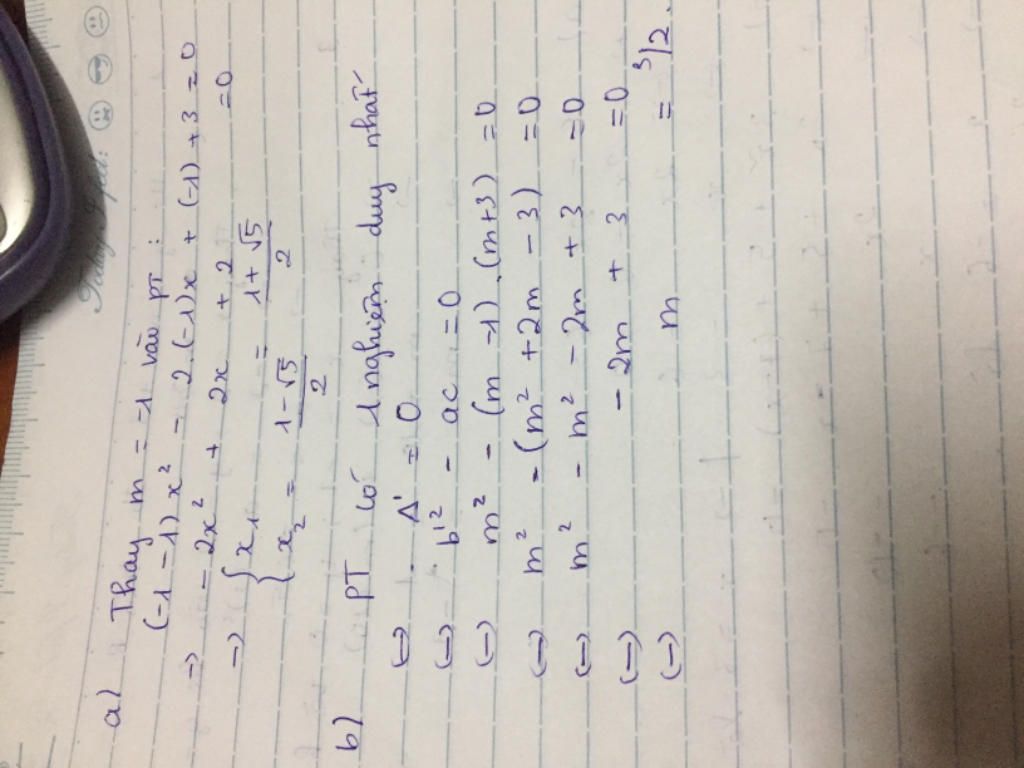 a) Thay m = -1 vào pt :
(-1 -1) x² - 2.(-1)x + (-1) + 3 = 0
→ - 2x² + 2x + 2 = 0
→ { x₁ = 1+√5 / 2
{ x₂ = 1-√5 / 2
b) PT có 1 nghiệm duy nhất
(→) Δ' = 0
(→) b'² - ac = 0
(→) m² - (m -1).(m+3) = 0
(→) m² - (m² + 2m - 3) = 0
(→) m² - m² - 2m + 3 = 0
(→) - 2m + 3 = 0
(→) m = 3/2.